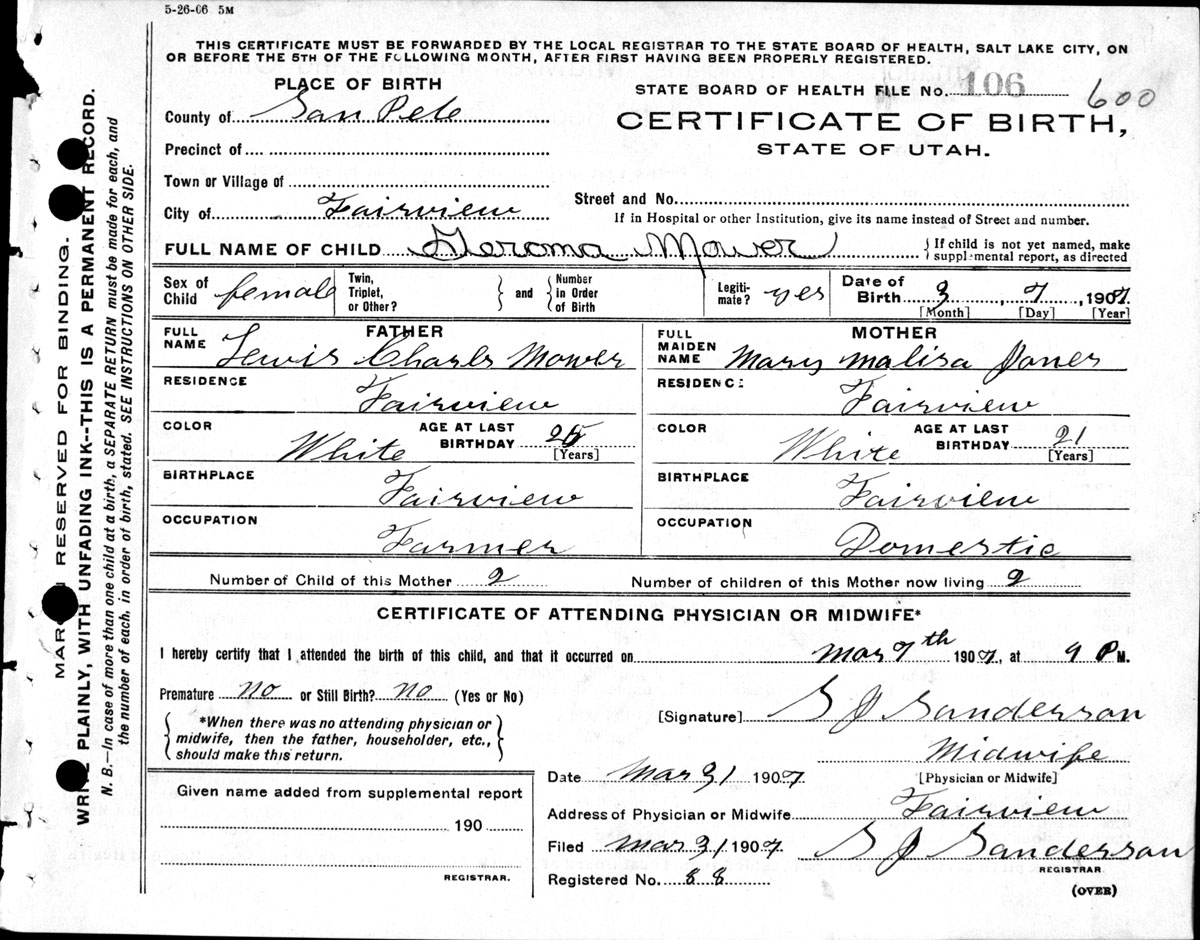 5-26-06 5M
THIS CERTIFICATE MUST BE FORWARDED BY THE LOCAL REGISTRAR TO THE STATE BOARD OF HEALTH, SALT LAKE CITY, ON
OR BEFORE THE 5TH OF THE FOLLOWING MONTH, AFTER FIRST HAVING BEEN PROPERLY REGISTERED.
PLACE OF BIRTH
STATE BOARD OF HEALTH FILE No. 106 600
County of San Pete
CERTIFICATE OF BIRTH,
STATE OF UTAH.
Precinct of
Town or Village of
Street and No.
City of Fairview
If in Hospital or other Institution, give its name instead of Street and number.
FULL NAME OF CHILD Geroma Mower { If child is not yet named, make supplemental report, as directed
Sex of Child female Twin, Triplet, or Other? } and { Number in Order of Birth Legiti-mate? yes Date of Birth 3, 7, 1907
[Month] [Day] [Year]
FATHER
FULL NAME Lewis Charls Mower
RESIDENCE Fairview
COLOR White AGE AT LAST BIRTHDAY 25 [Years]
BIRTHPLACE Fairview
OCCUPATION Farmer
MOTHER
FULL MAIDEN NAME Mary Malisa Jones
RESIDENCE Fairview
COLOR White AGE AT LAST BIRTHDAY 21 [Years]
BIRTHPLACE Fairview
OCCUPATION Domestic
Number of Child of this Mother 2 Number of children of this Mother now living 2
CERTIFICATE OF ATTENDING PHYSICIAN OR MIDWIFE*
I hereby certify that I attended the birth of this child, and that it occurred on Mar 7th 1907, at 9 P M.
Premature no or Still Birth? no (Yes or No)
[Signature] S J Sanderson
*When there was no attending physician or
midwife, then the father, householder, etc.,
should make this return.
Midwife
[Physician or Midwife]
Date Mar 31 1907
Given name added from supplemental report
190
REGISTRAR.
Address of Physician or Midwife Fairview
Filed Mar 31 1907 S J Sanderson
REGISTRAR
Registered No. 88
(OVER)
MARGIN RESERVED FOR BINDING.
WRITE PLAINLY, WITH UNFADING INK--THIS IS A PERMANENT RECORD.
N. B.—In case of more than one child at a birth, a SEPARATE RETURN must be made for each, and
the number of each, in order of birth, stated. SEE INSTRUCTIONS ON OTHER SIDE.